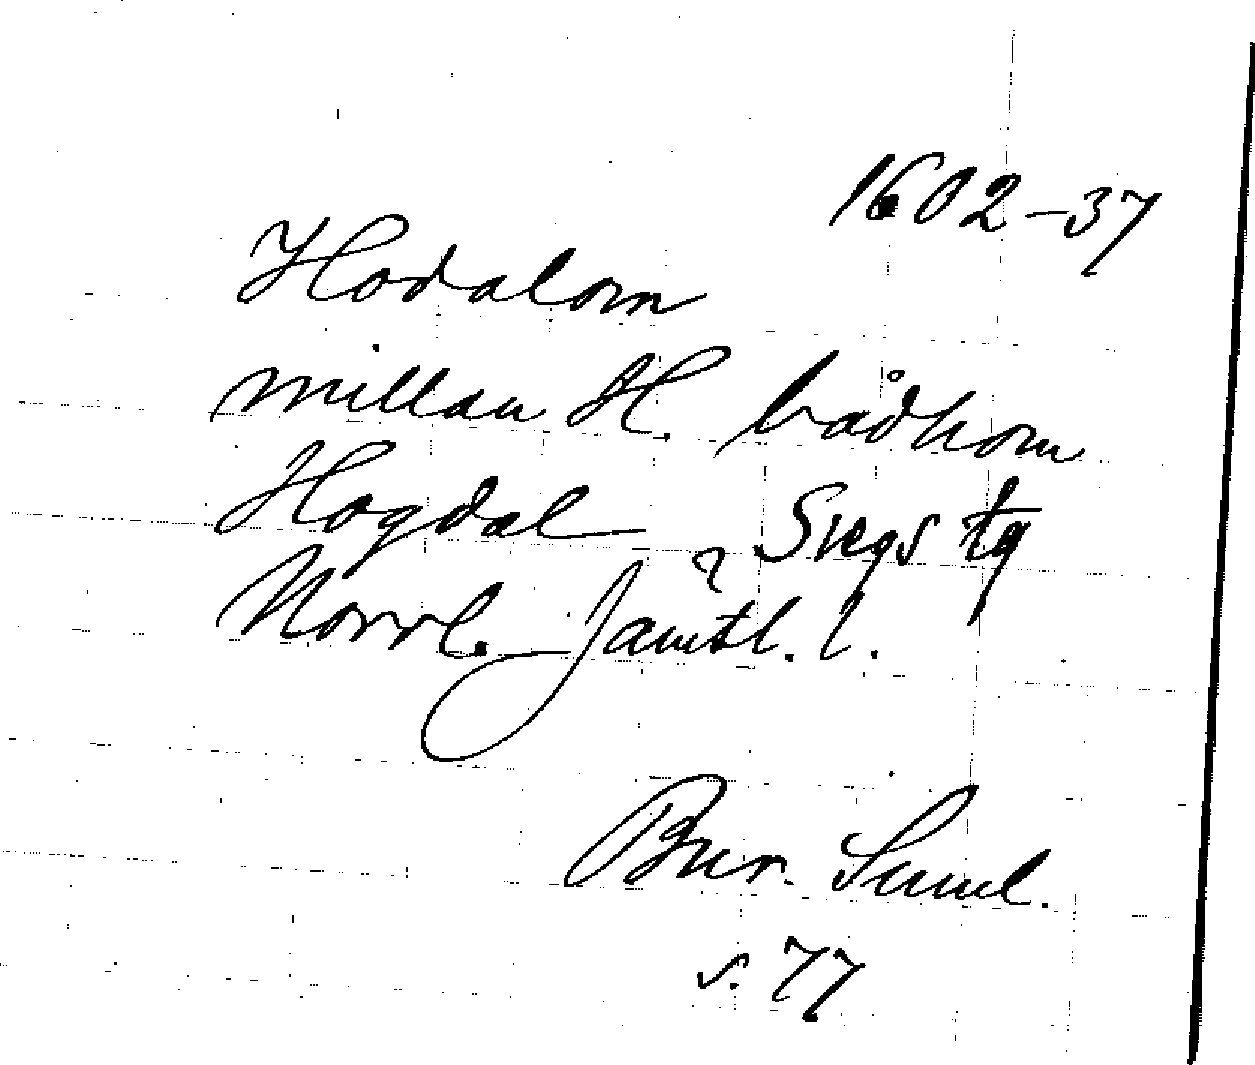 1602-37
Hodalom
millan H. bådhom
Hogdal Svegs tg
Norrl. Jämtl. l.
Bur. Suml.
s. 77